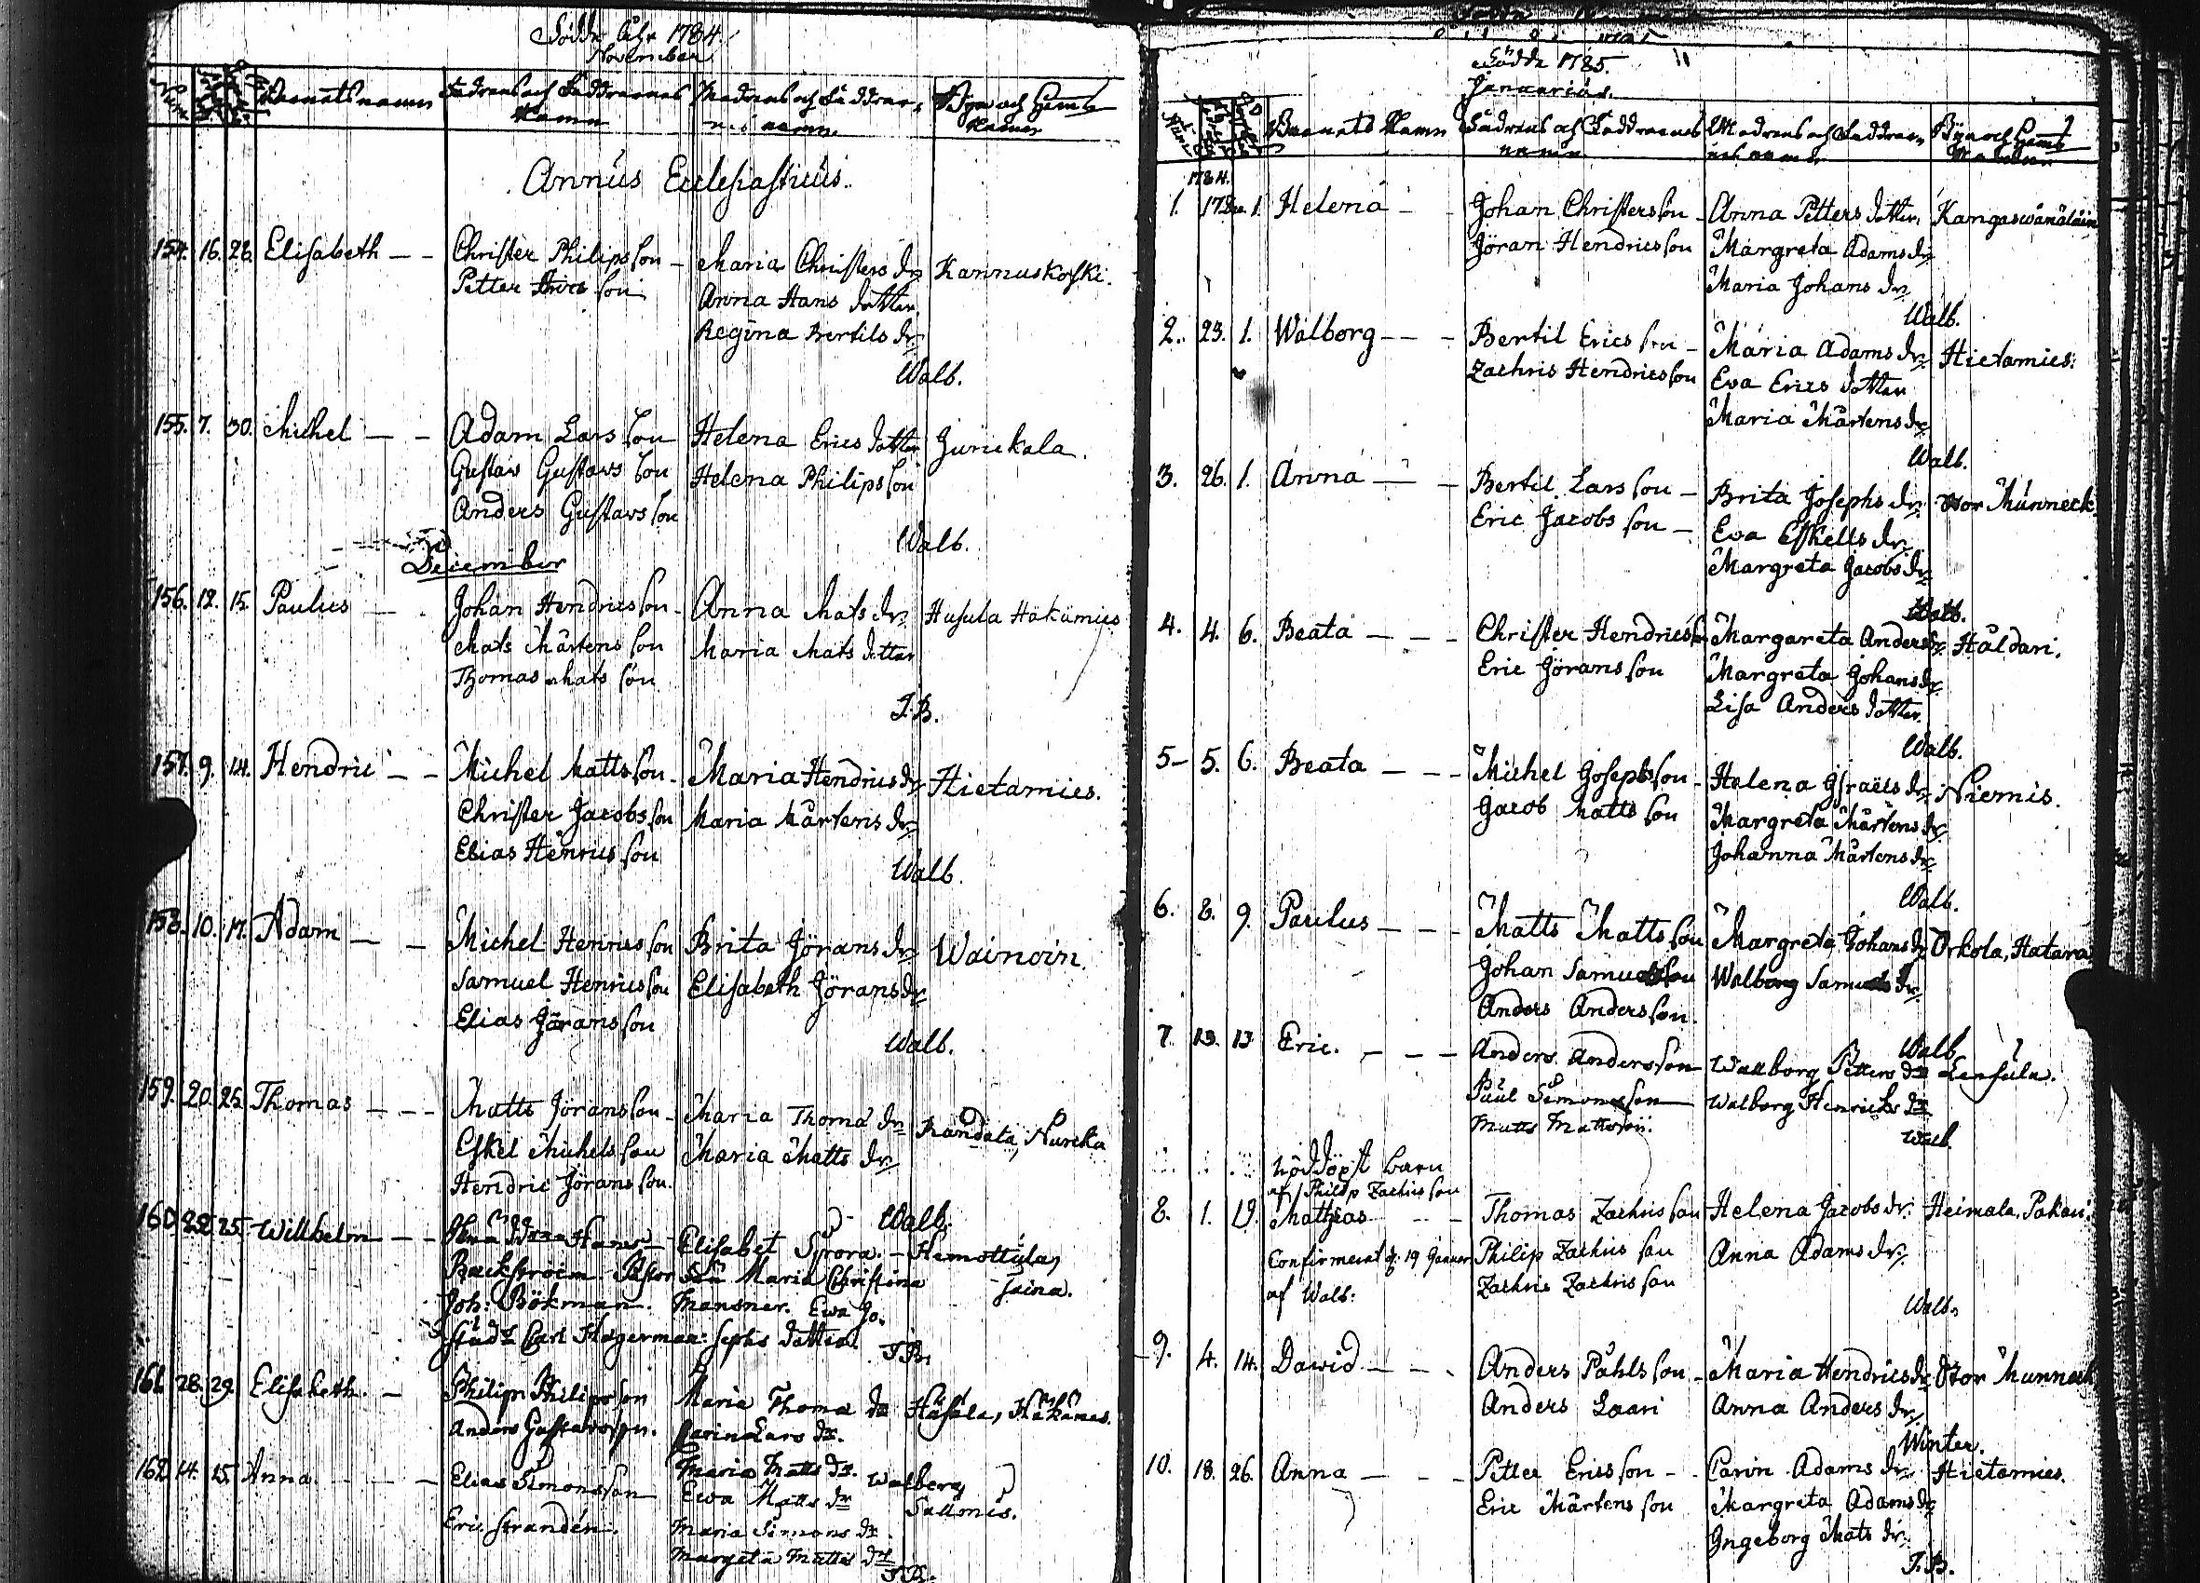 Födde Åhr 1784.
November
Barnets namn Fadrens och Faddrarnas Namn Modrens och Faddrar-nes namn Byns och Hemb Namn
Annus Ecclesiasticus.
154. 16. 28. Elisabeth — — Christer Philipsson — Maria Christers dr. Kannuskoski.
Petter Erics son Anna Hans dotter
Regina Bertils dr.
Walb.
155. 7. 30. Michel — — Adam Lars son Helena Erics dotter Junckala.
Gustav Gustavs son Helena Philips son
Anders Gustavs son
Walb.
December
156. 12. 15. Paulus — Johan Hendrics son — Anna Mats dr. Husula Häkämies
Mats Mårtens son Maria Mats dotter
Thomas Mats son
J.B.
157. 9. 14. Hendric — — Michel Matts son — Maria Hendrics dr. Hietamies.
Christer Jacobs son Maria Mårtens dr.
Elias Henrics son
Walb.
158. 10. 17. Adam — — Michel Henrics son Brita Jörans dr. Wainoin.
Samuel Henrics son Elisabeth Jörans dr.
Elias Jörans son
Walb.
159. 20. 25. Thomas — — — Matts Jörans son — Maria Thoma dr. Kandala, Nurcka
Eskel Michels son Maria Matts dr.
Hendric Jörans son.
Walb.
160. 22. 25. Willhelm — — Hans Elisabet Sprora. — Hemottula,
Backstroem. Pastor Maria Christina Jaina.
Joh: Bökman. Mansner. Ewa Jo-
Carl Hagerman: sephs dotter.
J.B.
161. 28. 29. Elisabeth. — Philip Philipsson Maria Thoma dr Husula, Häkämies.
Anders Gustavsson. Carin Lars dr.
162. 14. 15. Anna — Elias Simonsson Maria Matts dr. Walberg
Eric Strandén. Ewa Matts dr Sallonis.
Maria Simons dr.
Margeta Matts dr
J.B.
Födde 1785.
Januarius.
Num Barnets Namn Fadrens och Faddrarnes namn Modrens och Faddrar-nes namn Byns och Hemb Namn
1784.
1. 1. Helena — — Johan Christers son — Anna Petters dotter. Kangaswänäläin
Jöran Hendrics son Margreta Adams dr.
Maria Johans dr.
Walb.
2. 23. 1. Walborg — — — Bertil Erics son — Maria Adams dr. Hietamies.
Zachris Hendrics son Eva Erics dotter
Maria Mårtens dr.
Walb.
3. 26. 1. Anna — — — Bertil Lars son — Brita Josephs dr. Stor Munneck.
Eric Jacobs son — Eva Eskells dr.
Margreta Jacobs dr.
Walb.
4. 4. 6. Beata — — — Christer Hendrics son Margareta Anders dr. Haldari.
Eric Jörans son Margreta Johans dr.
Lisa Anders dotter.
Walb.
5. 5. 6. Beata — — — Michel Josephs son — Helena Israels dr. Niemis.
Jacob Matts son Margreta Mårtens dr.
Johanna Mårtens dr.
Walb.
6. 8. 9. Paulus — — — Matts Matts son Margreta Johans dr. Orkola, Hatara
Johan Samuels son Walborg Samuels dr.
Anders Anders son.
Walb.
7. 13. 13 Eric. — — — Anders Andersson Walborg Petters dr Lensula.
Pául Simonsson Walborg Henrichs dr
Matts Mattsson.
Walb.
Nöddöpt barn
af Philip Zachris son
8. 1. 19. Mathias — — Thomas Zachris son Helena Jacobs dr. Heimala, Pakari.
Confirmerat d: 19 Januar Philip Zachris son Anna Adams dr.
af Walb: Zachris Zachris son
Walb.
9. 4. 14. Dawid — — . Anders Påhls son — Maria Hendrics dr. Stor Munneck
Anders Laari Anna Anders dr.
Winter.
10. 18. 26. Anna — — — Petter Erics son — — Carin Adams dr. Hietamies.
Eric Mårtens son Margreta Adams dr.
Ingeborg Mats dr.
J.B.